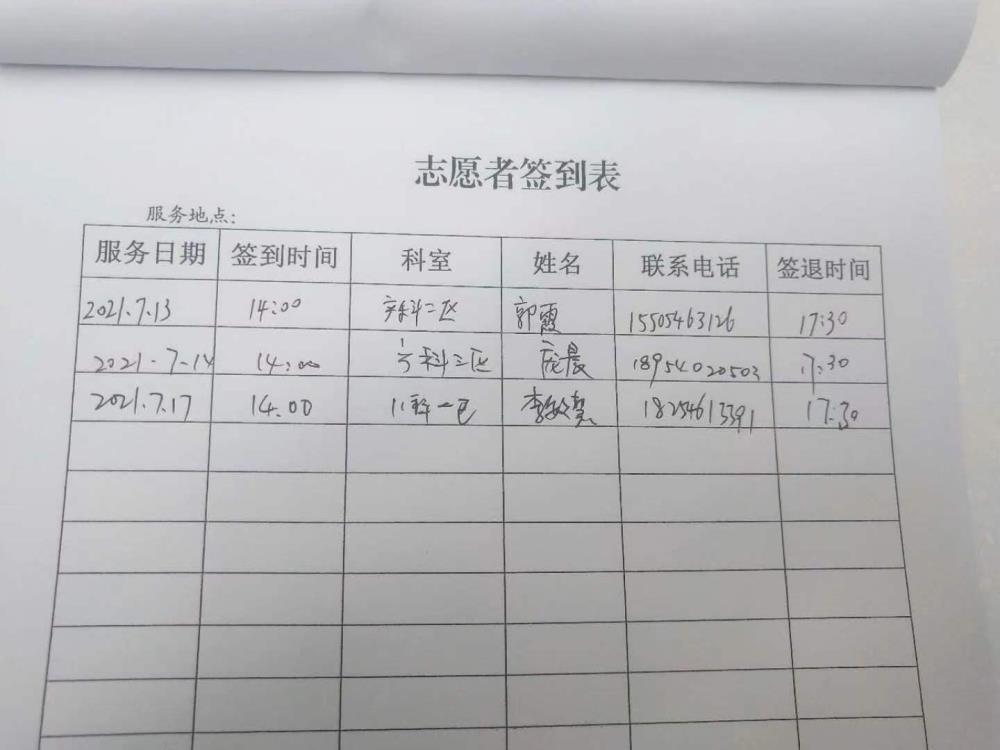 志愿者签到表
服务地点:
服务日期 签到时间 科室 姓名 联系电话 签退时间
2021.7.13 14:00 科二区 郭霞 15505463126 17:30
2021.7.14 14:00 科三区 庞晨 18954020503 17:30
2021.7.17 14:00 儿科一区 李 18254613391 17:30